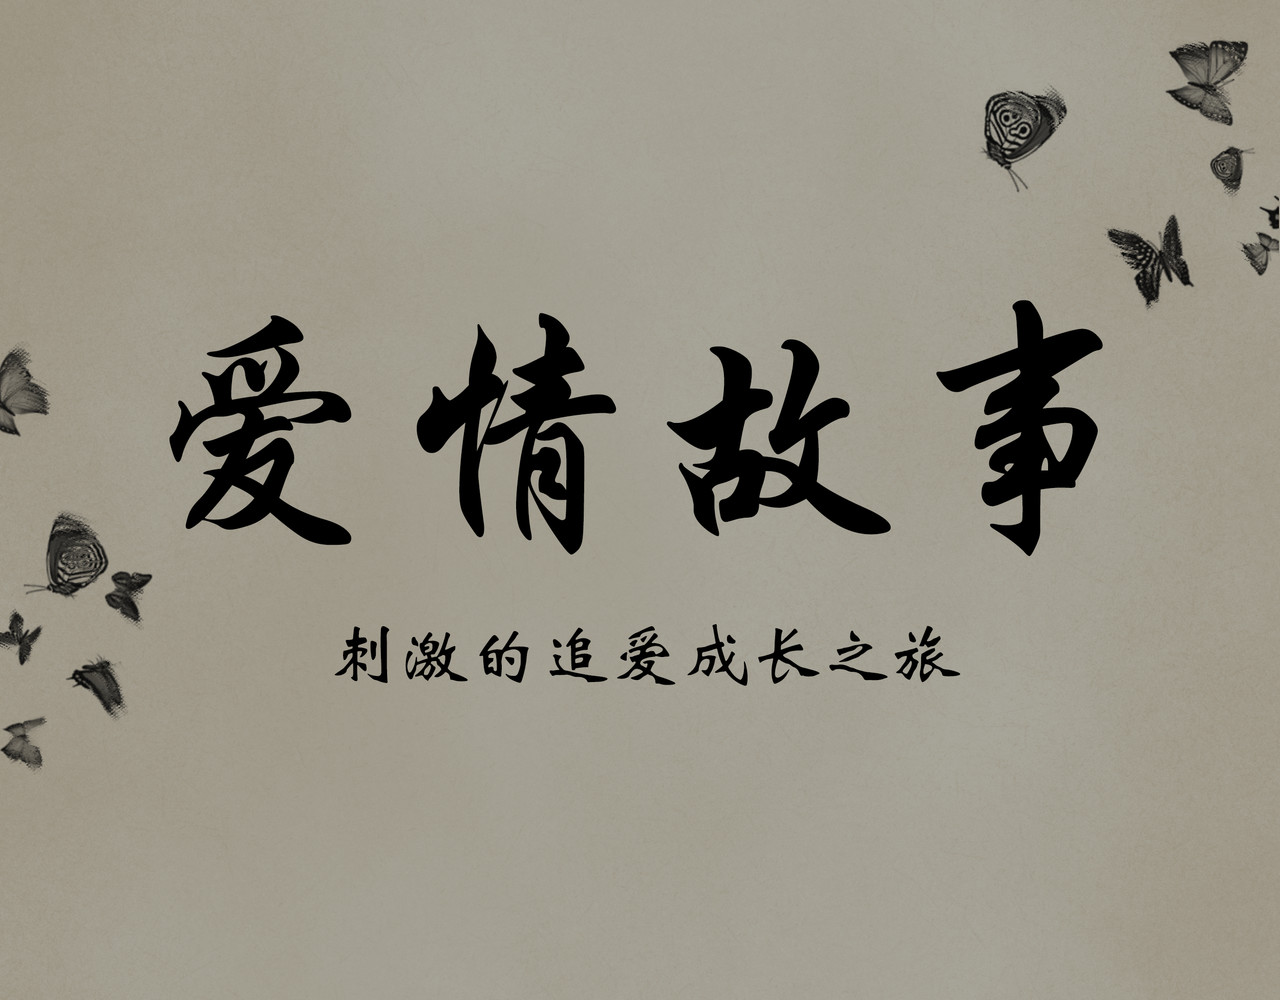 爱情故事
刺激的追爱成长之旅